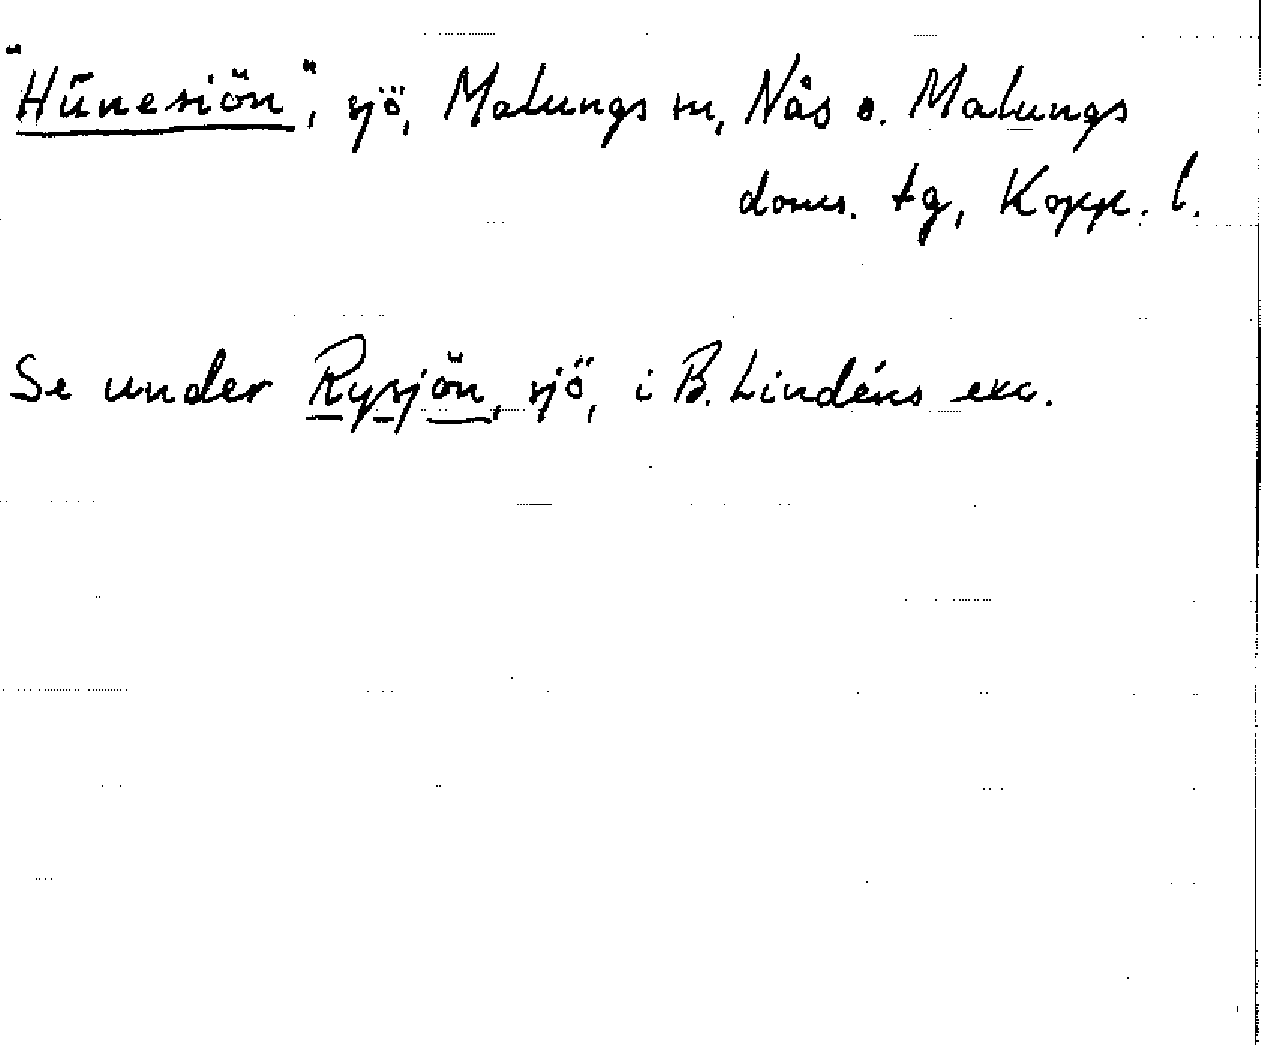 "Hünesiön", sjö, Malungs sn, Nås o. Malungs
doms. tg, Kopp. l.
Se under Rysjön, sjö, i B. Lindéns exc.